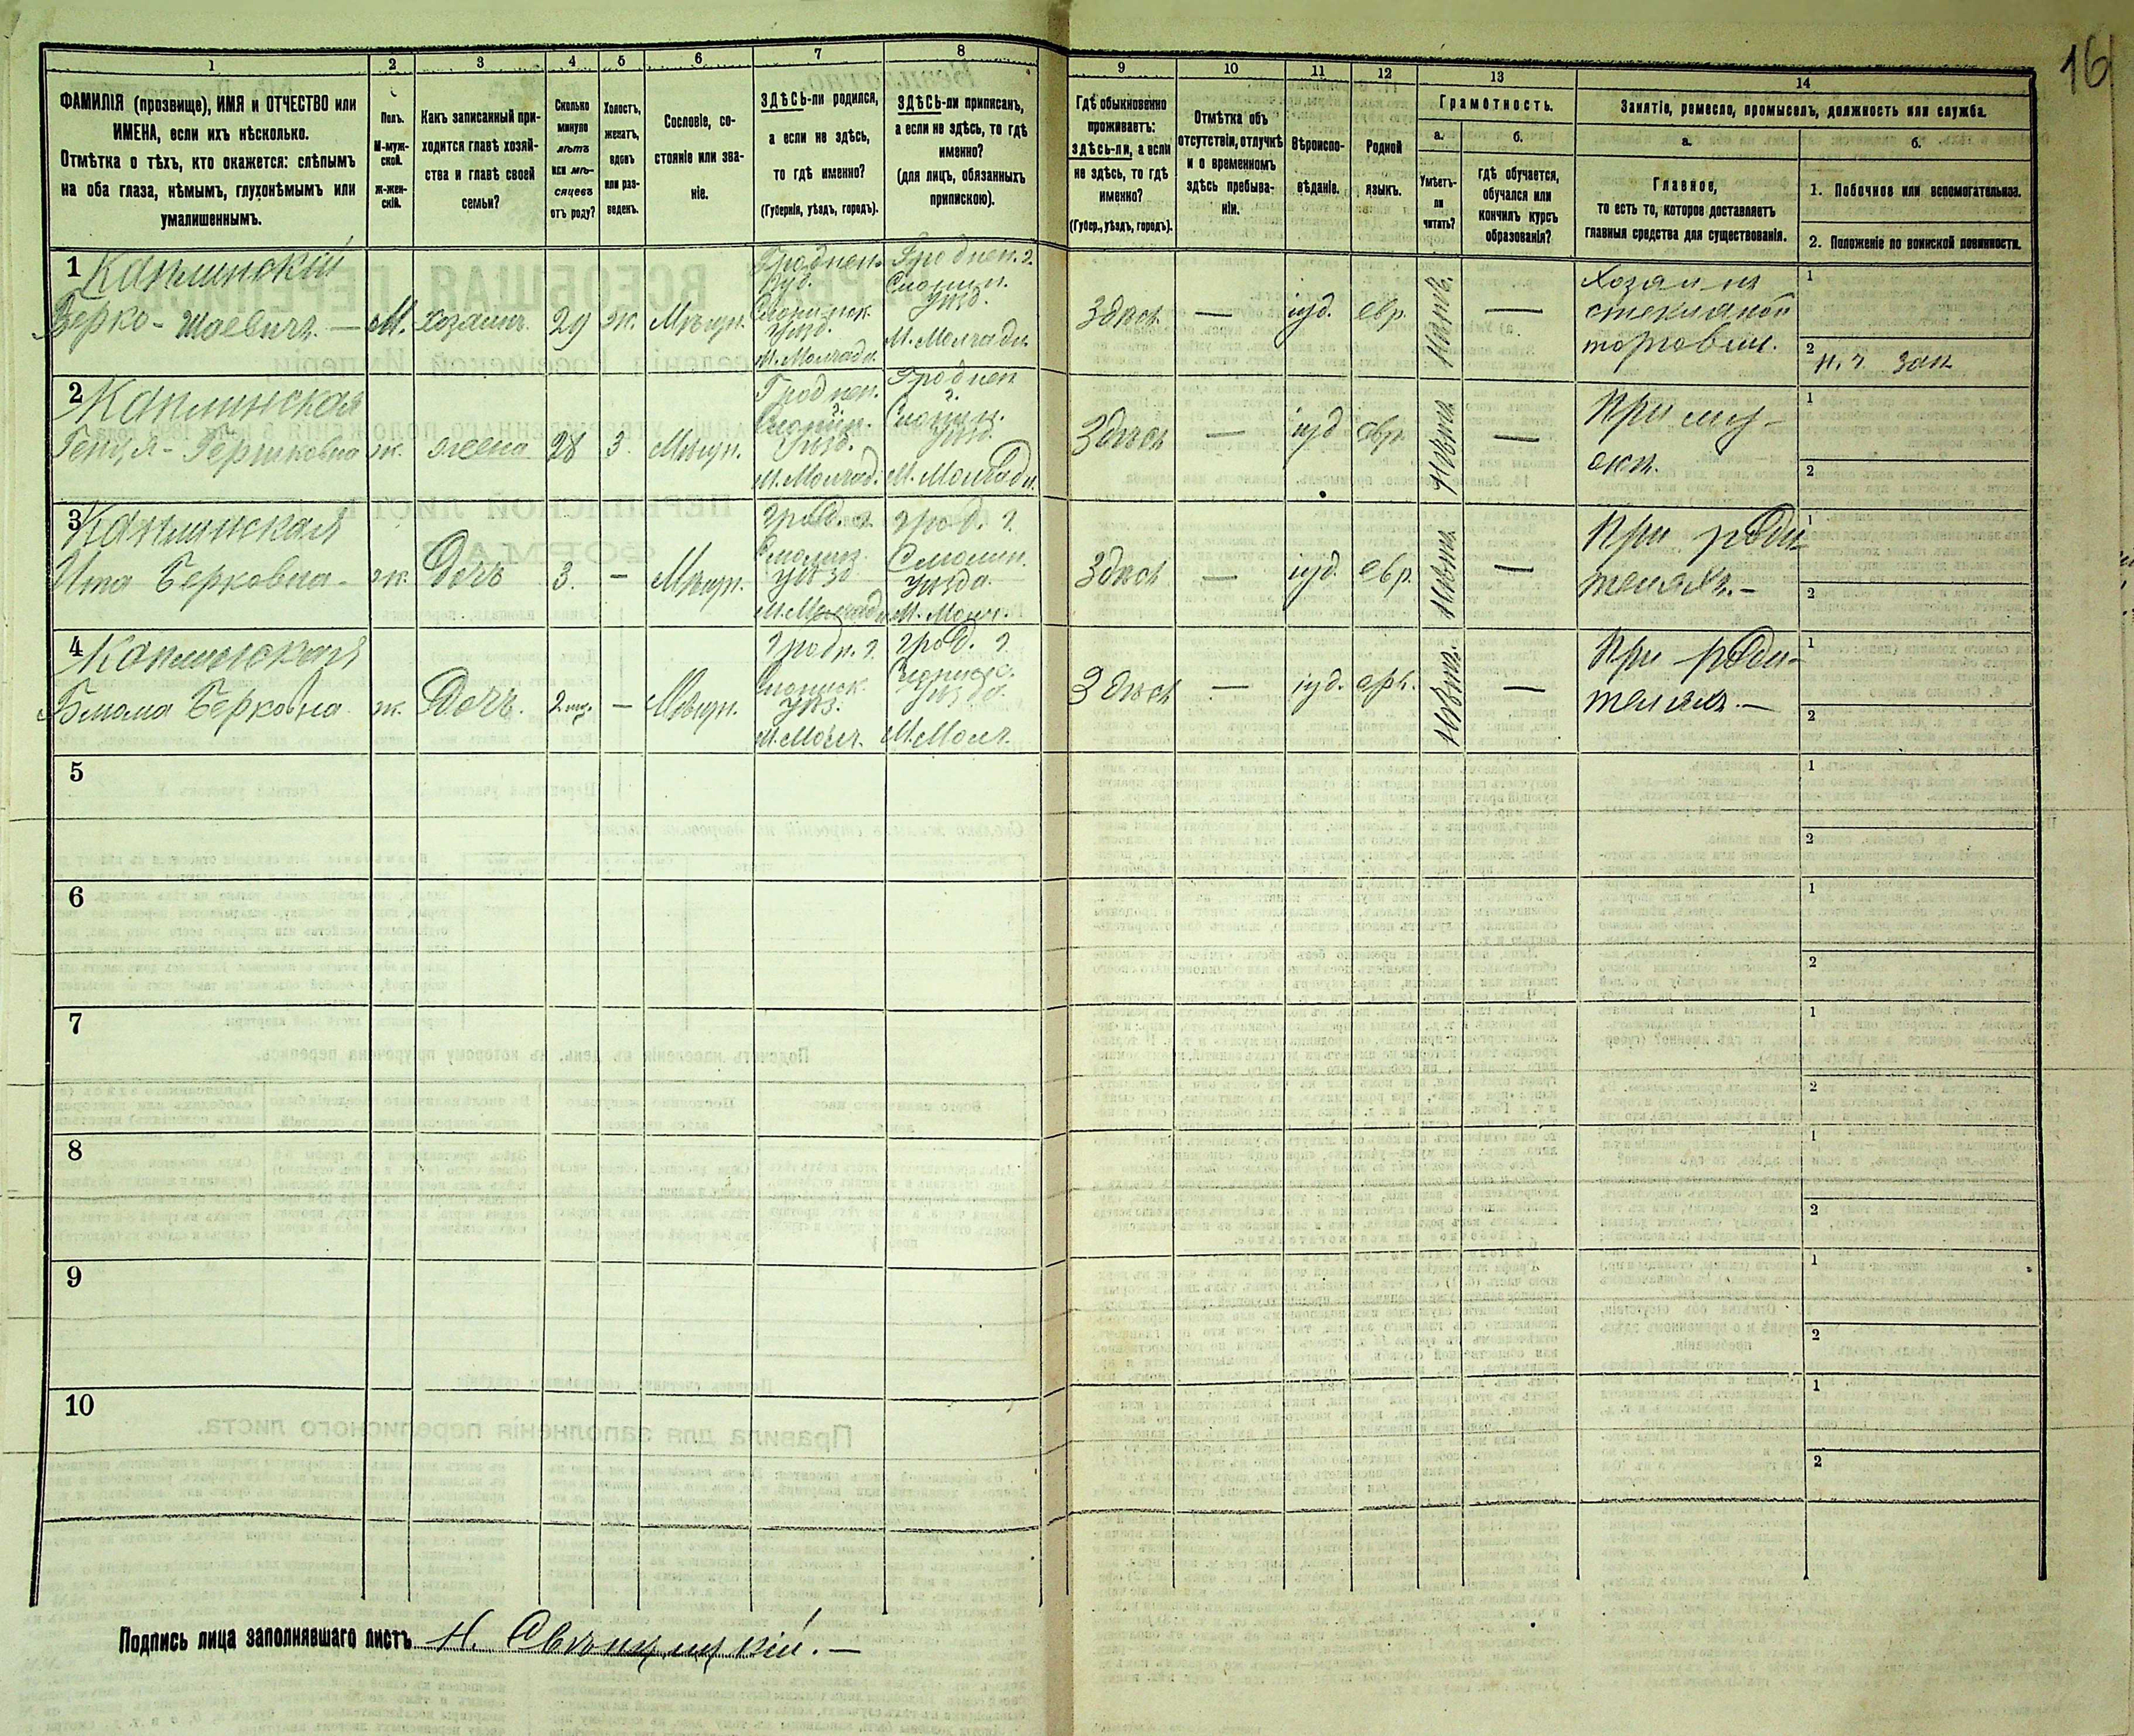 16
1 2 3 4 5 6 7 8 9 10 11 12 13 14
ФАМИЛІЯ (прозвище), ИМЯ и ОТЧЕСТВО или
ИМЕНА, если ихъ нѣсколько.
Отмѣтка о тѣхъ, кто окажется: слѣпымъ
на оба глаза, нѣмымъ, глухонѣмымъ или
умалишеннымъ.
Полъ.
М-муж-
ской.
ж-жен-
скій.
Какъ записанный при-
ходится главѣ хозяй-
ства и главѣ своей
семьи?
Сколько
минуло
лѣтъ
или мѣ-
сяцевъ
отъ роду?
Холостъ,
женатъ,
вдовъ
или раз-
веденъ.
Сословіе, со-
стояніе или зва-
ніе.
ЗДѢСЬ-ли родился,
а если не здѣсь,
то гдѣ именно?
(Губернія, уѣздъ, городъ).
ЗДѢСЬ-ли приписанъ,
а если не здѣсь, то гдѣ
именно?
(для лицъ, обязанныхъ
припискою).
Гдѣ обыкновенно
проживаетъ:
здѣсь-ли, а если
не здѣсь, то гдѣ
именно?
(Губер., уѣздъ, городъ).
Отмѣтка объ
отсутствіи, отлучкѣ
и о временномъ
здѣсь пребыва-
ніи.
Вѣроиспо-
вѣданіе.
Родной
языкъ.
Грамотность.
а. б.
Умѣетъ-
ли
читать?
гдѣ обучается,
обучался или
кончилъ курсъ
образованія?
Занятіе, ремесло, промыселъ, должность или служба.
а. б.
Главное,
то есть то, которое доставляетъ
главныя средства для существованія.
1. Побочное или вспомогательное.
2. Положеніе по воинской повинности.
1 Каплинскій
Берко - Шаевичъ. — М. хозяинъ. 29 ж. Мѣщ.
Гроднен.
губ.
Слонимск.
уѣзд.
М. Молчадь.
Гроднен. г.
Слоним.
уѣзд.
М. Молчадь
Здѣсь — іуд. евр. —
Хозяинъ
стеклянной
торговли.
1
2
2 Каплинская
Генця - Гершковна ж. жена 28 З. Мѣщ.
Гроднен.
г.
Слоним.
уѣзд.
М. Молчад.
Гроднен
г.
Слоним.
уѣзд.
М. Молчадь
Здѣсь — іуд евр. —
При му-
жѣ.
1
2
3 Каплинская
Ита Берковна - ж. Дочь 3. — Мѣщ.
грод. г.
уѣзд
М. Молчадь
грод. г.
Слоним.
уѣзда.
М. Молч.
Здѣсь — іуд. евр. —
При роди-
теляхъ. —
1
2
4 Каплинская
Блюма Берковна ж. Дочь. — Мѣщ.
гродн. г.
Слонимск.
уѣз.
М. Молч.
грод. г.
уѣзда.
М. Молч.
Здѣсь — іуд. евр. —
При роди-
теляхъ. —
1
2
5 1
2
6 1
2
7 1
2
8 1
2
9 1
2
10 1
2
Подпись лица заполнявшаго листъ